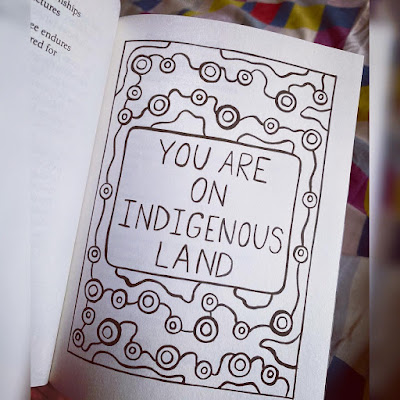 nships
ctures
ee endures
red for
YOU ARE
ON
INDIGENOUS
LAND